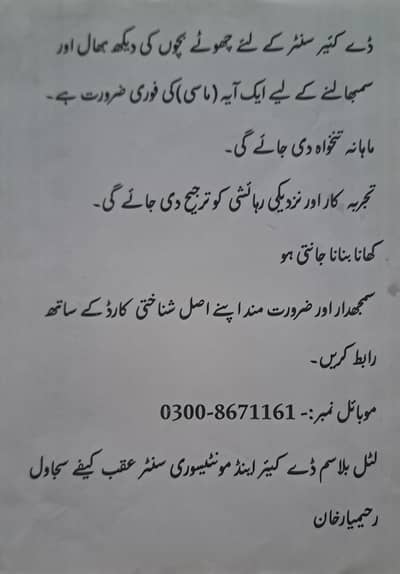 ڈے کئیر سنٹر کے لئے چھوٹے بچوں کی دیکھ بھال اور
سمبھالنے کے لیے ایک آیہ (ماسی) کی فوری ضرورت ہے۔
ماہانہ تنخواہ دی جائے گی۔
تجربہ کار اور نزدیکی رہائشی کو ترجیح دی جائے گی۔
کھانا بنانا جانتی ہو
سمجھدار اور ضرورت مند اپنے اصل شناختی کارڈ کے ساتھ
رابط کریں۔
موبائل نمبر:- 0300-8671161
لٹل بلاسم ڈے کیئر اینڈ مونٹیسوری سنٹر عقب کیفے سجاول
رحیمیارخان